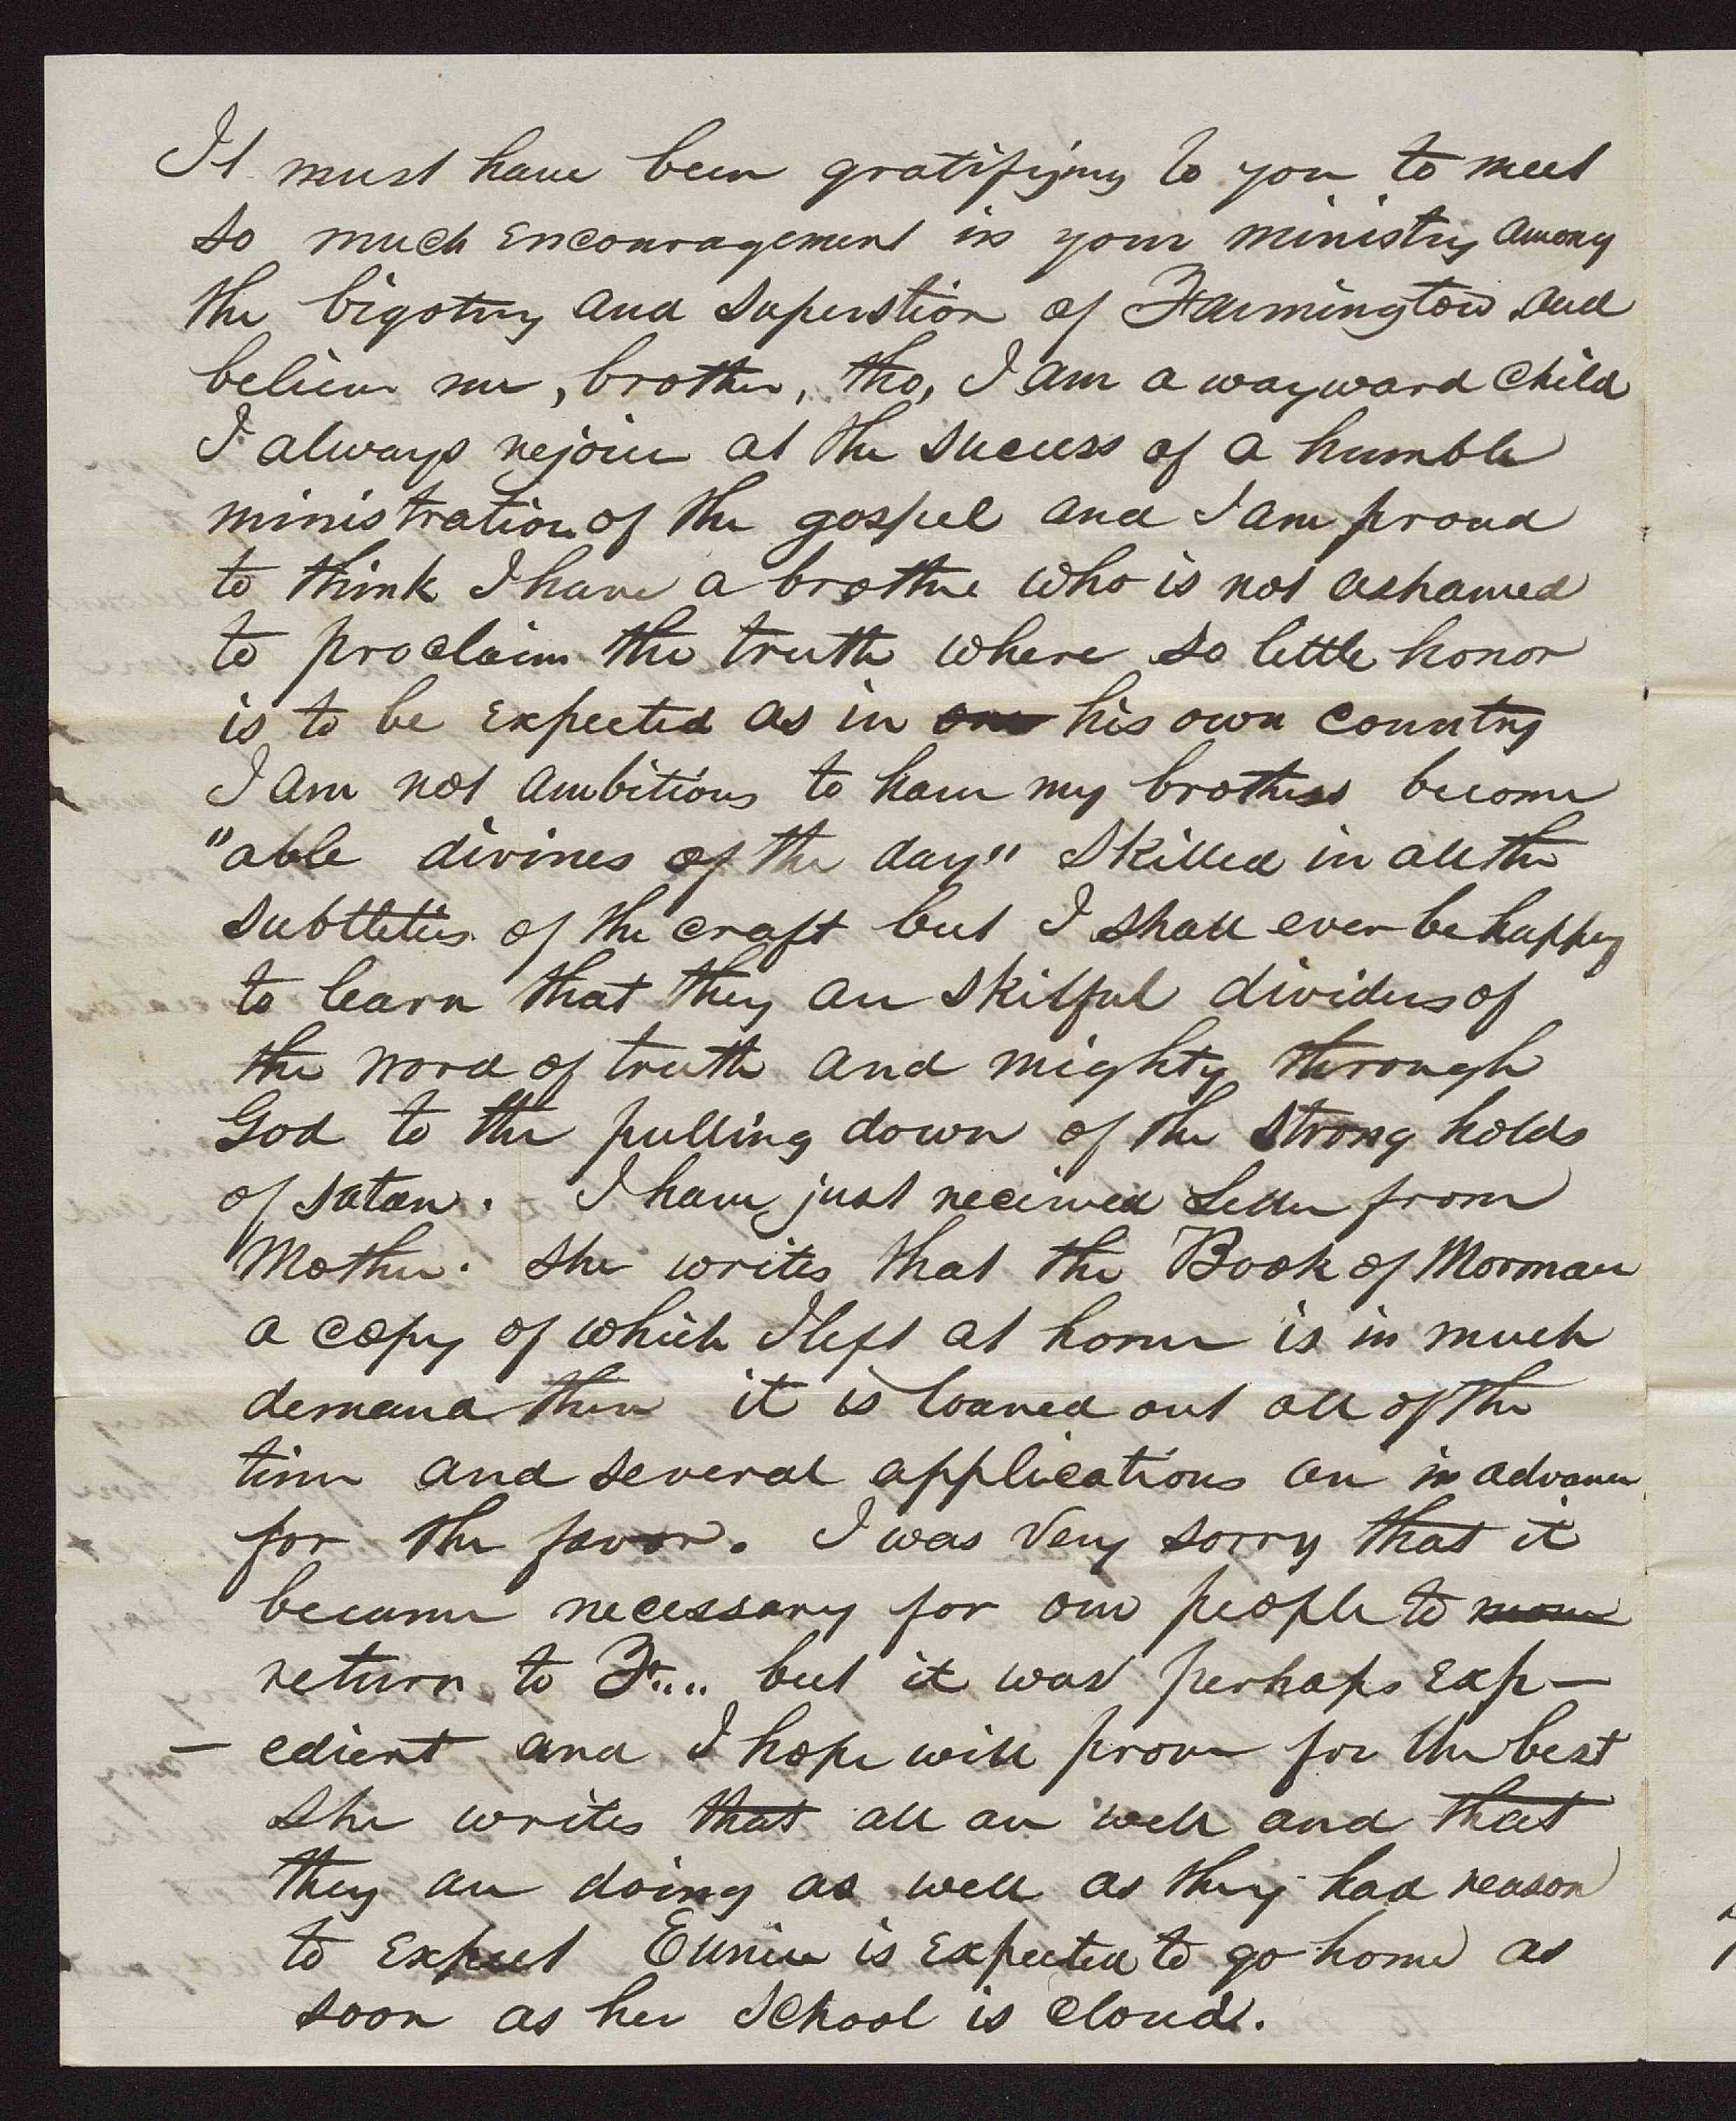 It must have been gratifying to you to meet
so much encouragement in your ministry among
the bigotry and superstion of Farmington and
believe me, brother, tho, I am a wayward child
I always rejoice at the success of a humble
ministration of the gospel and I am proud
to think I have a brother who is not ashamed
to proclaim the truth where so little honor
is to be expected as in one his own country
I am not ambitious to have my brothers become
"able divines of the day" skilled in all the
subtleties of the craft but I shall ever be happy
to learn that they are skilful dividers of
the word of truth and mighty through
God to the pulling down of the strong holds
of satan. I have just received Letter from
Mother. she writes that the Book of Morman
a copy of which I left at home is in much
demand there it is loaned out all of the
time and several applications are in advance
for the favor. I was very sorry that it
became necessary for our people to move
return to F.... but it was perhaps exp—
— edient and I hope will prove for the best
she writes that all are well and that
they are doing as well as they had reason
to expect Eunice is expected to go home as
soon as her school is closed.